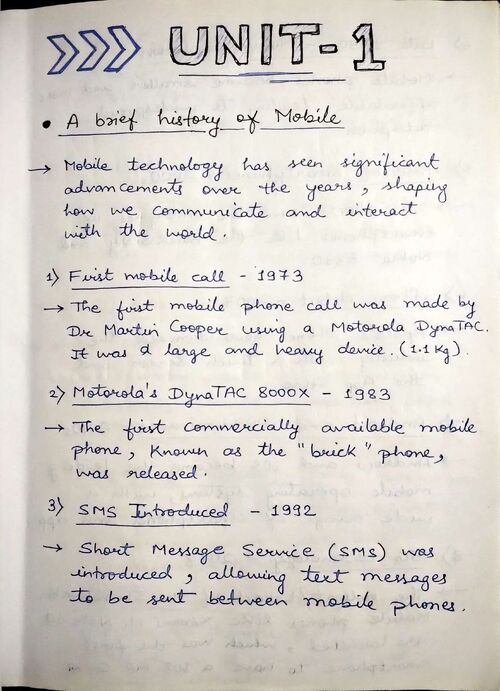 UNIT-1
• A brief history of Mobile
→ Mobile technology has seen significant
advancements over the years, shaping
how we communicate and interact
with the world.
1) First mobile call - 1973
→ The first mobile phone call was made by
Dr Martin Cooper using a Motorola DynaTAC.
It was a large and heavy device. (1.1 Kg).
2) Motorola's DynaTAC 8000X - 1983
→ The first commercially available mobile
phone, known as the "brick" phone,
was released.
3) SMS Introduced - 1992
→ Short Message Service (SMS) was
introduced, allowing text messages
to be sent between mobile phones.